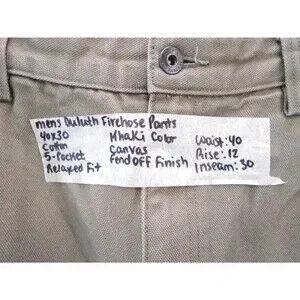 mens Duluth Firehose Pants
40x30
Cotton
5-Pocket
Relaxed Fit
Khaki Color
Canvas
Fend Off Finish
Waist: 40
Rise: 12
Inseam: 30